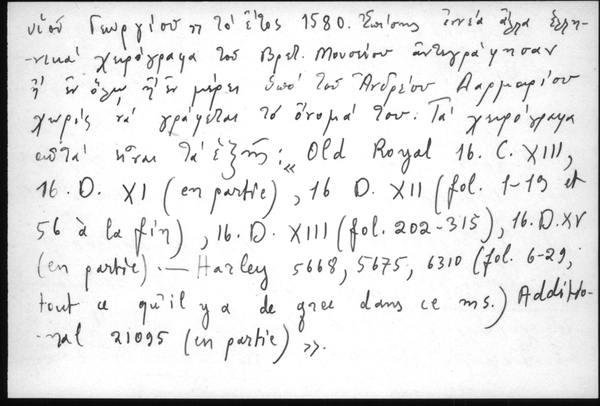 υἱοῦ Γεωργίου τὸ ἔτος 1580. Ἐπίσης ἐννέα ἄλλα ἑλλη-
-νικὰ χειρόγραφα τοῦ Βρετ. Μουσείου ἀντιγράφησαν
ἢ ἐν ὅλῳ ἢ ἐν μέρει ὑπὸ τοῦ Ἀνδρέου Δαρμαρίου
χωρὶς νὰ γράφεται τὸ ὄνομά του. Τὰ χειρόγραφα
αὐτὰ εἶναι τὰ ἑξῆς: « Old Royal 16. C. XIII,
16. D. XI (en partie), 16 D. XII (fol. 1-19 et
56 à la fin), 16. D. XIII (fol. 202-315), 16. D. XV
(en partie). — Harley 5668, 5675, 6310 (fol. 6-29,
tout ce qu'il y a de grec dans ce ms.) Additio-
-nal 21095 (en partie) ».